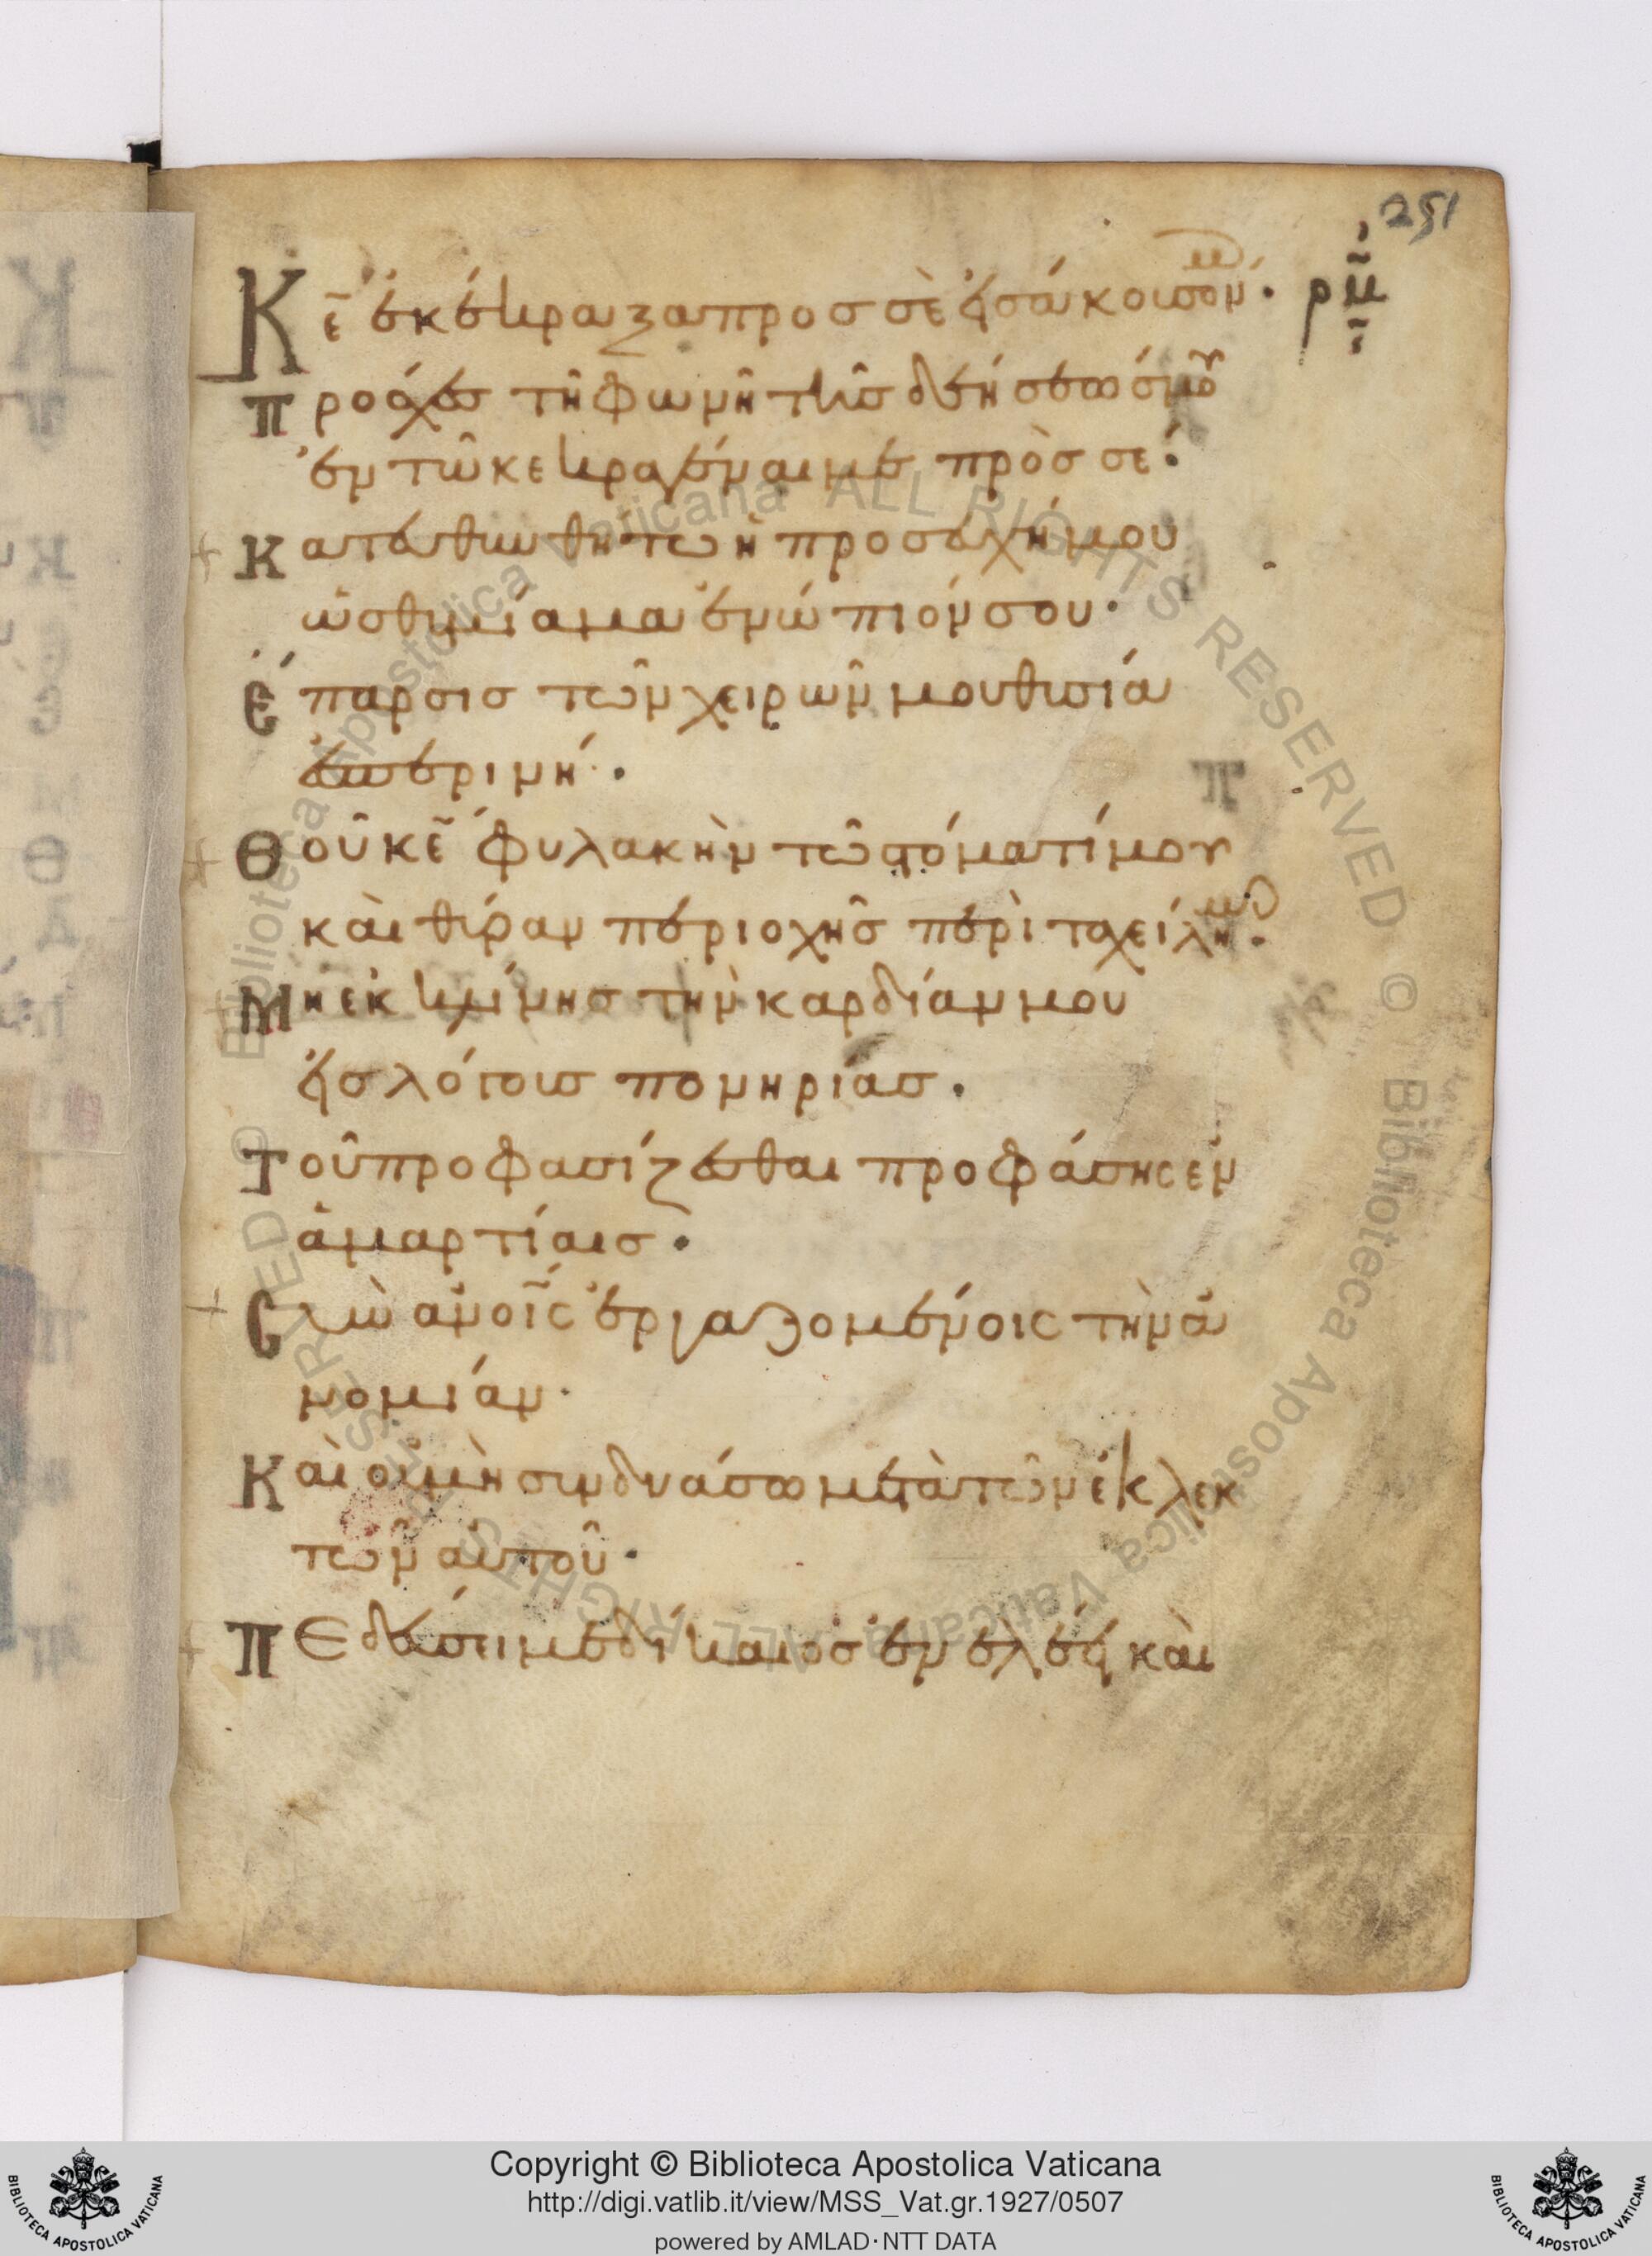 251
Κε̄ ἐκέκραξα προσ σὲ εἰσάκουσόν μου· ρμ
Πρόσχες τῆ φωνῆ τῆσ δεήσεώσ μου
ἐν τῶ κεκραγέναι με πρὸσ σέ·
Κατευθυνθήτω ἡ προσευχή μου
ὡσ θυμίαμα ἐνώπιόν σου·
Ἔπαρσισ τῶν χειρῶν μου θυσία
ἑσπερινή·
Θοῦ κε̄ φυλακὴν τῶ στόματί μου
καὶ θύραν περιοχῆσ περὶ τὰ χείλη μου·
Μὴ ἐκκλίνησ τὴν καρδίαν μου
εἰσ λόγουσ πονηρίασ·
Τοῦ προφασίζεσθαι προφάσησ ἐν
ἁμαρτίαισ·
Σὺν ἀνοῖς ἐργαζομένοις τὴν ἀ
νομίαν·
Καὶ οὐ μὴ συνδυάσω μετὰ τῶν ἐκλεκ
τῶν αὐτοῦ·
Πεδεύσει με δίκαιοσ ἐν ἐλέει καὶ
Copyright © Biblioteca Apostolica Vaticana
http://digi.vatlib.it/view/MSS_Vat.gr.1927/0507
powered by AMLAD·NTT DATA
BIBLIOTECA APOSTOLICA VATICANA
BIBLIOTECA APOSTOLICA VATICANA
Biblioteca Apostolica Vaticana ALL RIGHTS RESERVED © Biblioteca Apostolica Vaticana ALL RIGHTS RESERVED ©